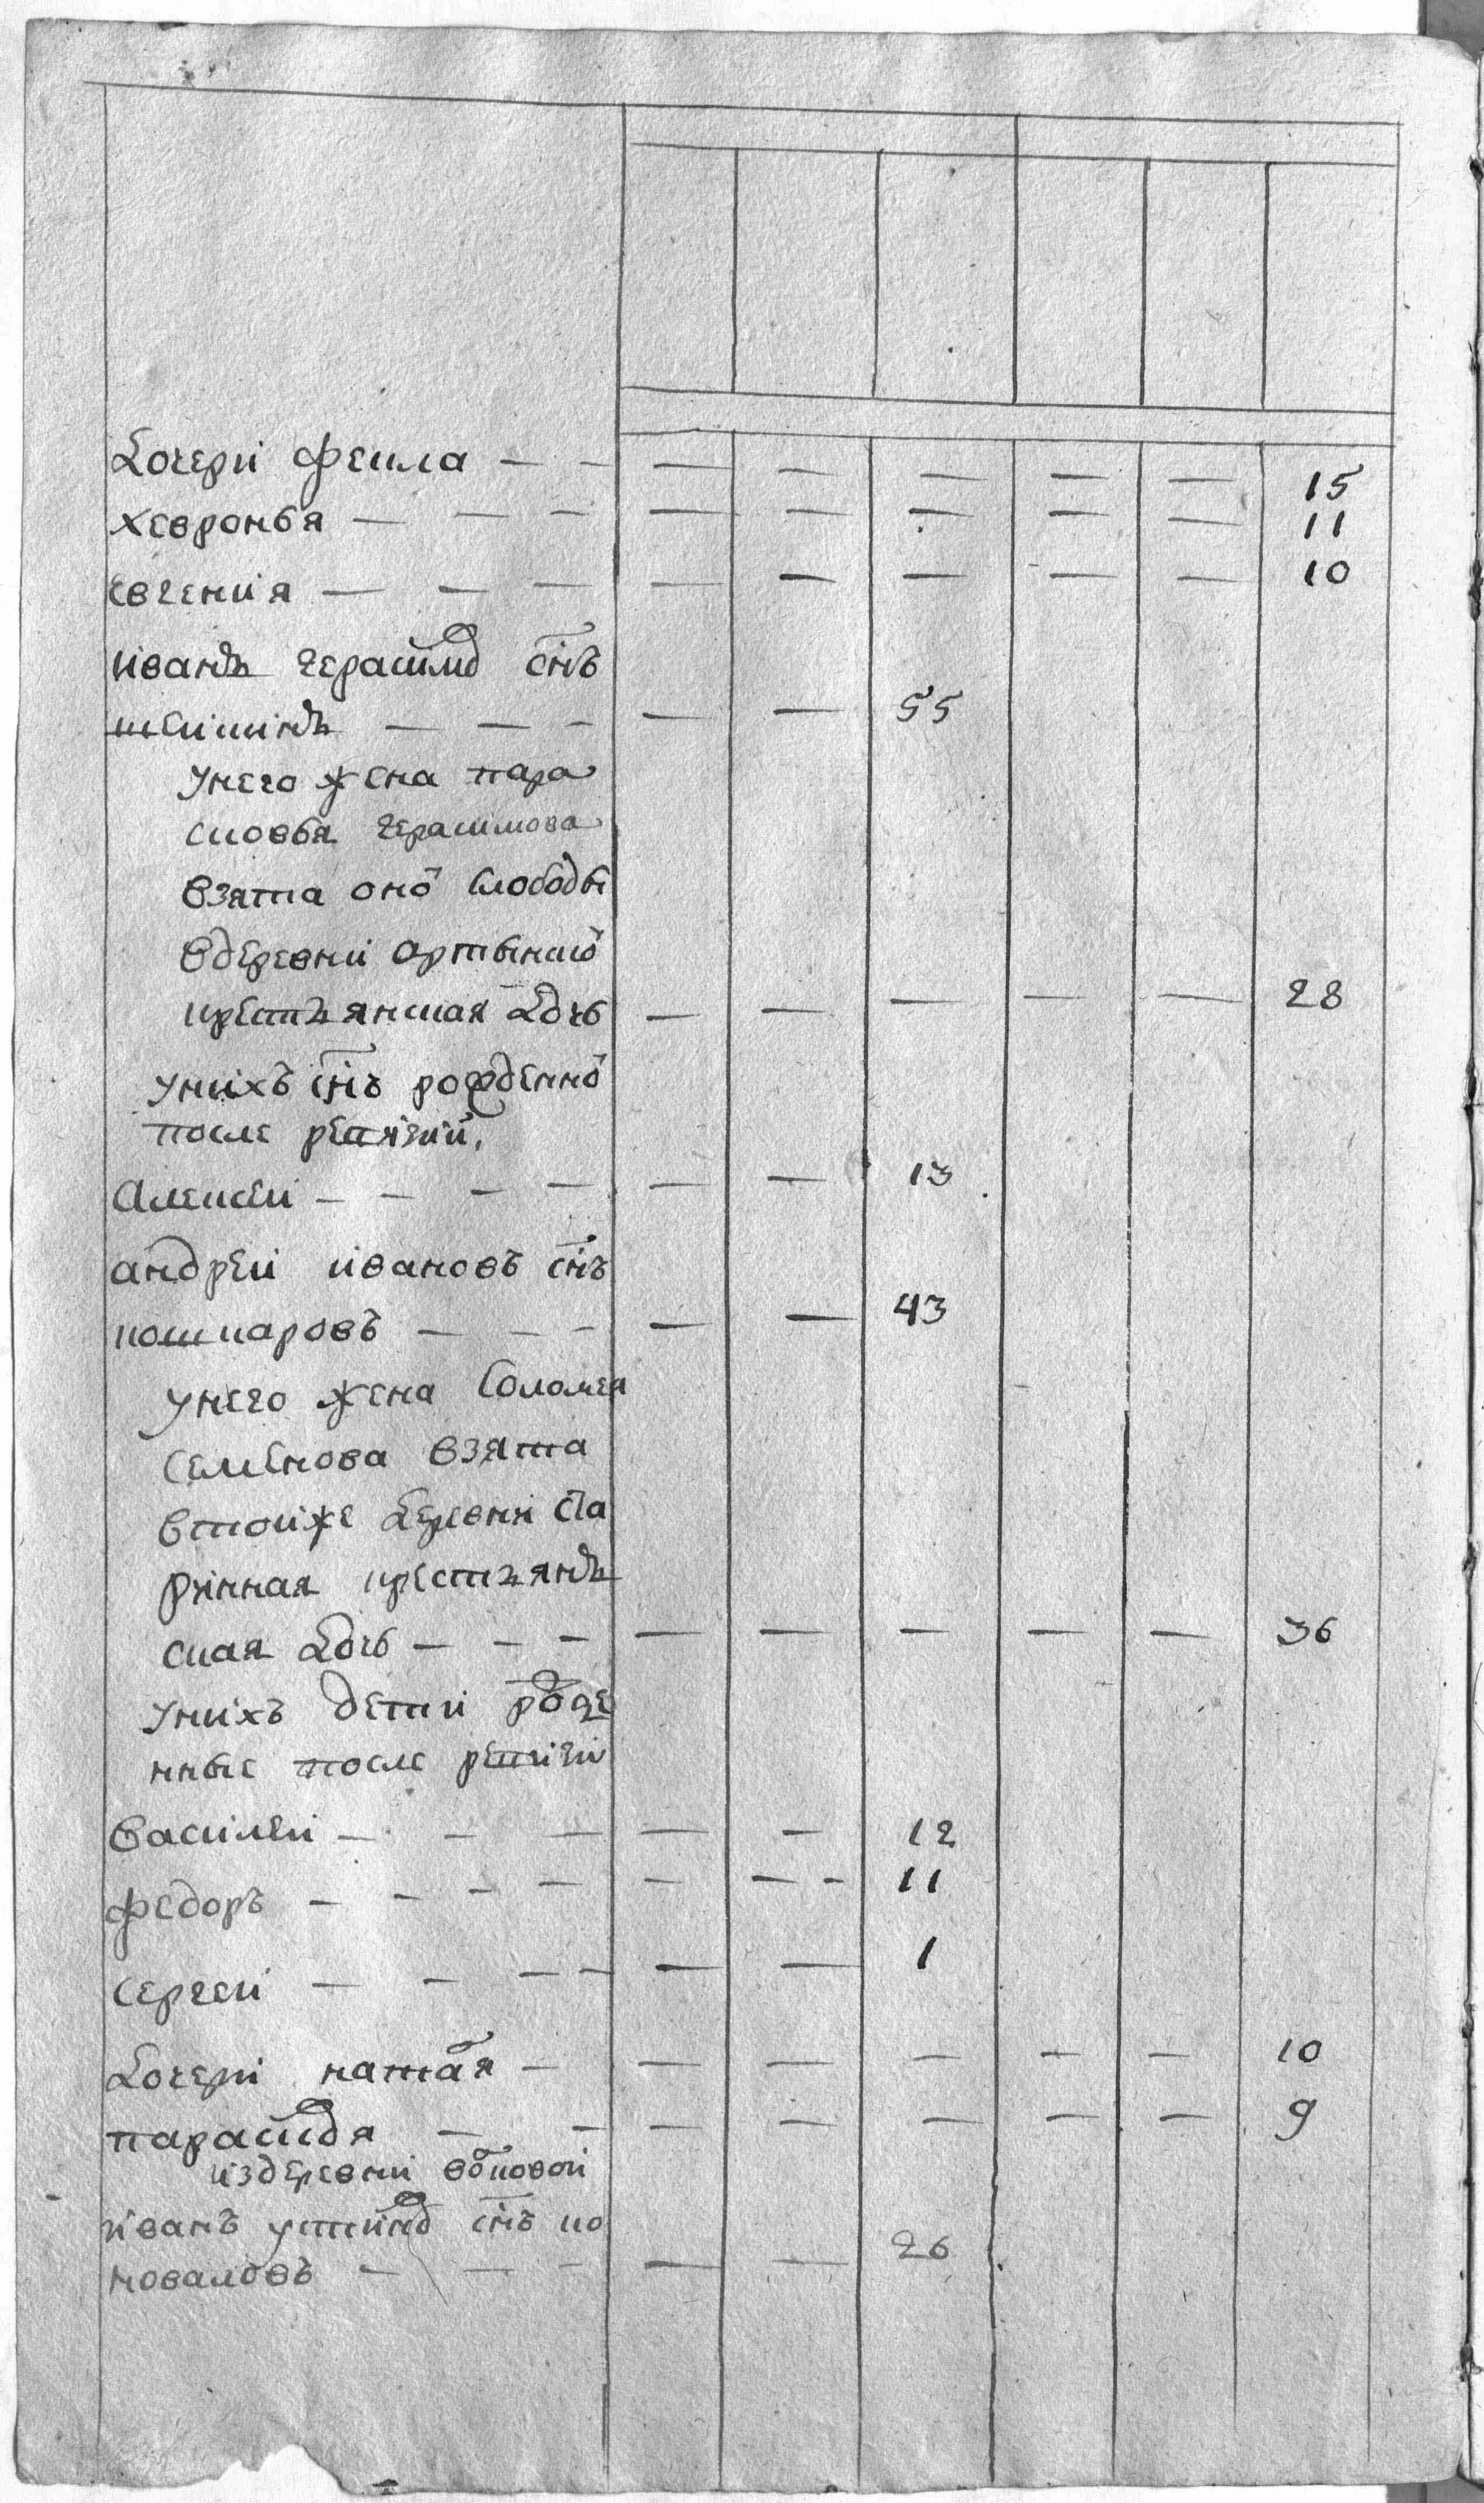 Дочери фекла — — — — — — — 15
хевронья — — — — — — — — 11
евгения — — — — — — — — 10
иванъ герасимов снъ
шешкинъ — — — — — 55
унего жена пара
сковья герасимова
взята оной слободы
вдеревни артынской
крестьянская дочь — — — — — 28
унихъ снъ рожденной
после ревизии,
Алексеи — — — — — — 13
андреи ивановъ снъ
кошкаровъ — — — — — 43
унего жена Соломея
семенова взята
втоиже деревни ста
ринная крестьянъ
ская дочь — — — — — — — — 36
унихъ дети рожде
нные после ревизии
василеи — — — — — 12
федоръ — — — — — — - 11
сергеи — — — — — — 1
Дочери наталя — — — — — — 10
парасковя — — — — — — — 9
издеревни
иванъ устинов снъ ко
новаловъ — — — — — 26